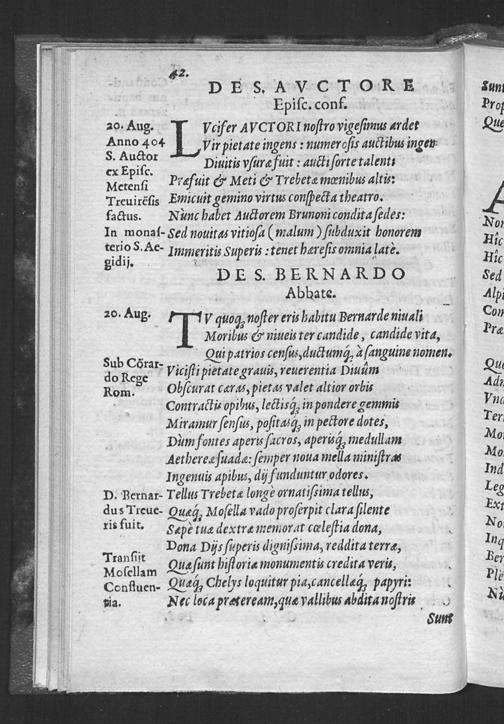 42.
DE S. AVCTORE
Episc. conf.
20. Aug.
Anno 404
S. Auctor
ex Episc.
Metensi
Treuirēsis
factus.
In monas-
terio S. Ae-
gidij.
LVcifer AVCTORI nostro vigesimus ardet
Vir pietate ingens: numerosis auctibus ingen
Diuitis vsuræ fuit: aucti sorte talenti
Præfuit & Meti & Trebetæ mœnibus altis:
Emicuit gemino virtus conspecta theatro.
Nūnc habet Auctorem Brunoni condita sedes:
Sed nouitas vitiosa (malum) subduxit honorem
Immeritis Superis: tenet hæresis omnia latè.
DE S. BERNARDO
Abbate.
20. Aug.
Sub Cōrar-
do Rege
Rom.
TV quoq, noster eris habitu Bernarde niuali
Moribus & niueis ter candide, candide vita,
Qui patrios census, ductumq́, à sanguine nomen.
Vicisti pietate grauis, reuerentia Diuûm
Obscurat caras, pietas valet altior orbis
Contractis opibus, lectisq́, in pondere gemmis
Miramur sensus, positasq́, in pectore dotes,
Dùm fontes aperis sacros, aperisq́, medullam
Aethereæ suadæ: semper noua mella ministras
Ingenuis apibus, dij funduntur odores.
D. Bernar-
dus Treue-
ris fuit.
Transijt
Mosellam
Confluen-
tia.
Tellus Trebetæ longè ornatissima tellus,
Quæq́, Mosella vado proserpit clara silente
Sæpè tuæ dextræ memorat cœlestia dona,
Dona Dijs superis dignissima, reddita terræ,
Quæ sunt historiæ monumentis credita veris,
Quæq́, Chelys loquitur pia, cancellæq́, papyri:
Nec loca præteream, quæ vallibus abdita nostris
Sunt
Sunt
Prop
Que
A
Non
Hîc
Hic
Sed
Alpi
Com
Præ
Que
Adn
Vna
Ter
Mo
Mo
Ind
Leg
Ext
No
Inq
Ber
Plē